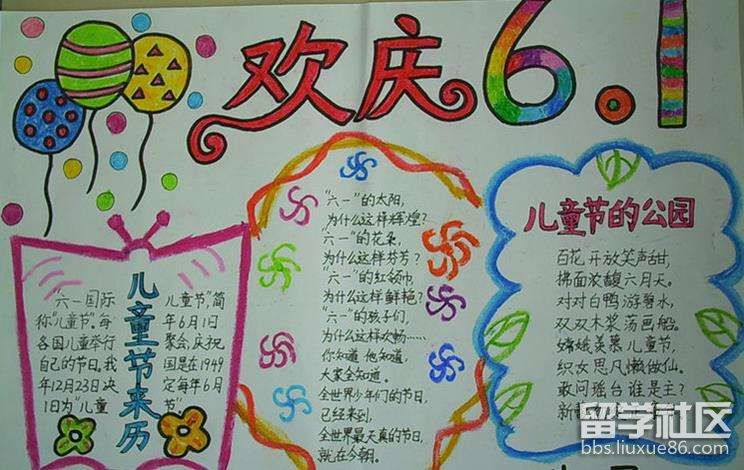 欢庆6.1
儿童节来历
六一国际
称"儿童节",每
各国儿童举行
自己的节日,我
年12月23日决
1日为"儿童
儿童节",简
年6月1日
聚会,庆祝
国是在1949
定每年6月
节"。
"六一"的太阳,
为什么这样辉煌?
"六一"的花朵,
为什么这样芬芳?
"六一"的红领巾
为什么这样鲜艳?
"六一"的孩子们,
为什么这样欢畅……
你知道 他知道,
大家全知道。
全世界少年们的节日,
已经来到,
全世界最天真的节日,
就在今朝。
儿童节的公园
百花开放笑声甜,
拂面浓馥六月天。
对对白鸭游碧水,
双双木桨荡画船。
嫦娥羡慕儿童节,
织女思凡懒做仙。
敢问瑶台谁是主?
新
留学社区
bbs.liuxue86.com